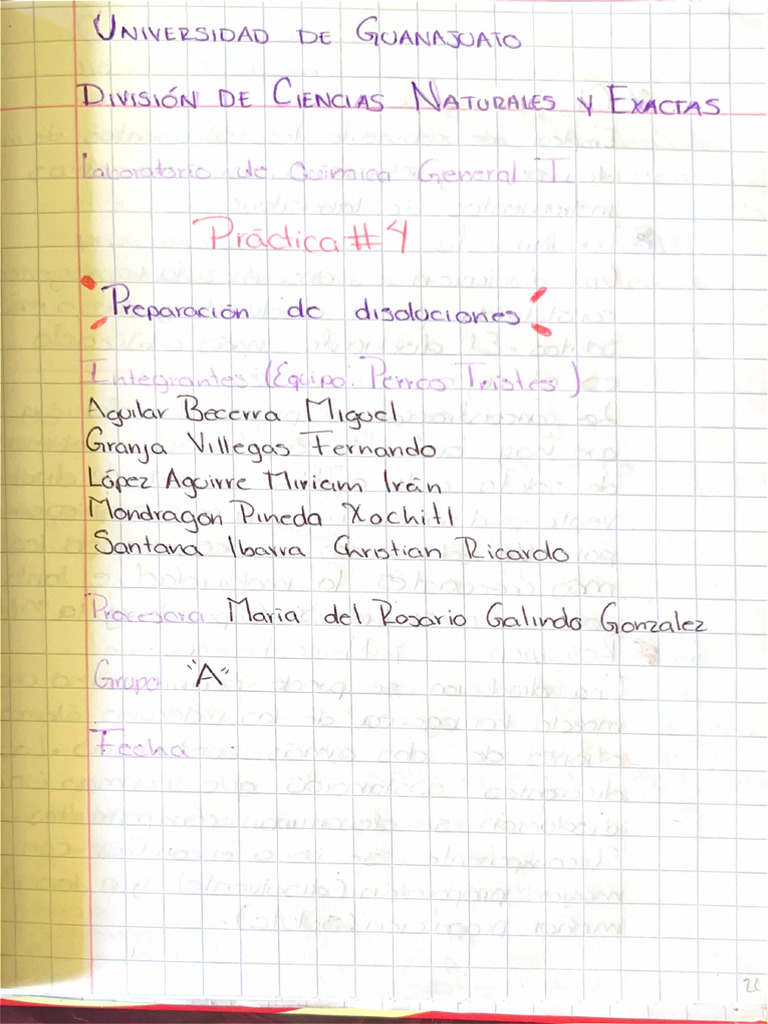 UNIVERSIDAD DE GUANAJUATO
DIVISIÓN DE CIENCIAS NATURALES Y EXACTAS
Laboratorio de Química General I.
Práctica #4
Preparación de disoluciones
Integrantes (Equipo: Perros Tristes)
Aguilar Becerra Miguel
Granja Villegas Fernando
López Aguirre Miriam Irán
Mondragon Pineda Xochitl
Santana Ibarra Christian Ricardo
Procesora Maria del Rosario Galindo Gonzalez
Grupo "A"
Fecha